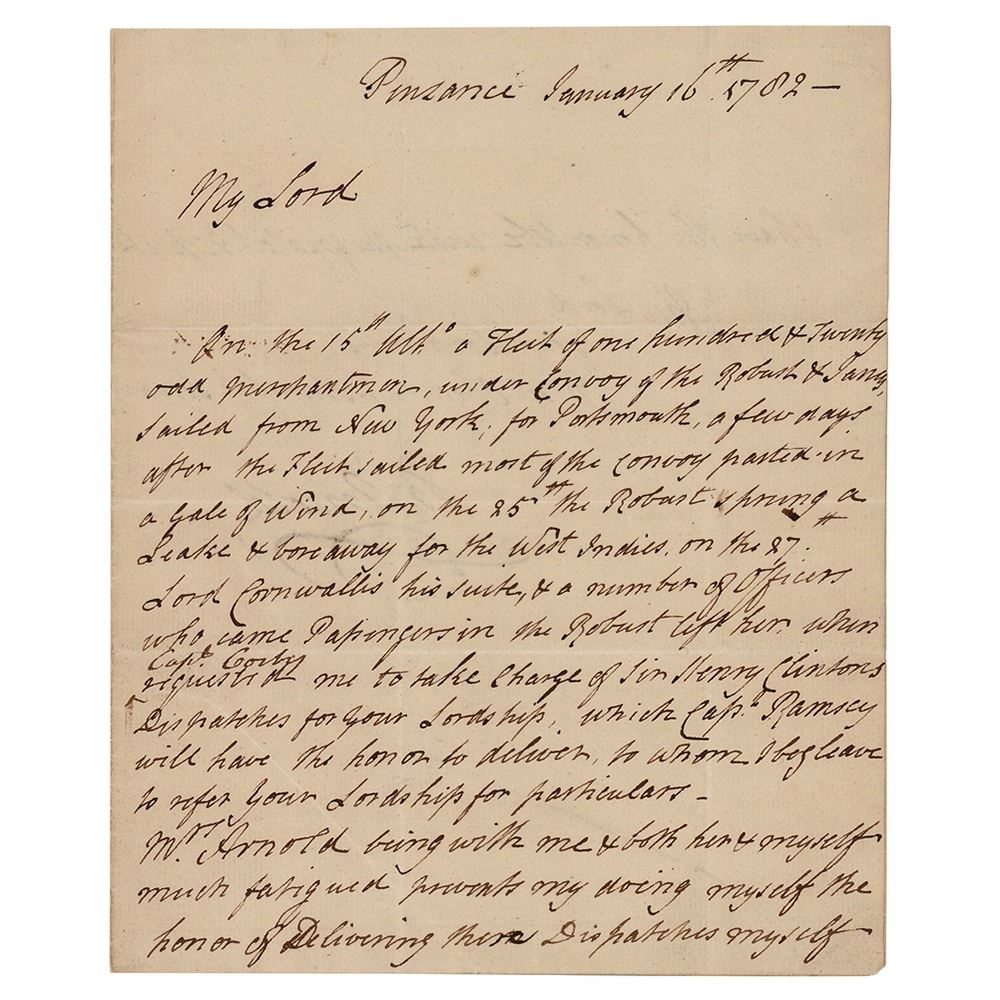 Penzance January 16th 1782 —
My Lord
On the 15th Ulto a Fleet of one hundred & Twenty
odd Merchantmen, under Convoy of the Robust & Janus,
sailed from New York, for Portsmouth, a few days
after the Fleet sailed most of the Convoy parted in
a Gale of Wind, on the 25th the Robust sprung a
Leake & bore away for the West Indies. on the 27th
Lord Cornwallis his suite, & a number of Officers
who came Passengers in the Robust left her, when
Capt Cosby
requested me to take Charge of Sir Henry Clintons
Dispatches for your Lordship, which Capt Ramsey
will have the honor to deliver, to whom I beg leave
to refer your Lordship for particulars —
Mrs Arnold being with me & both her & myself
much fatigued prevents my doing myself the
honor of Delivering there Dispatches myself